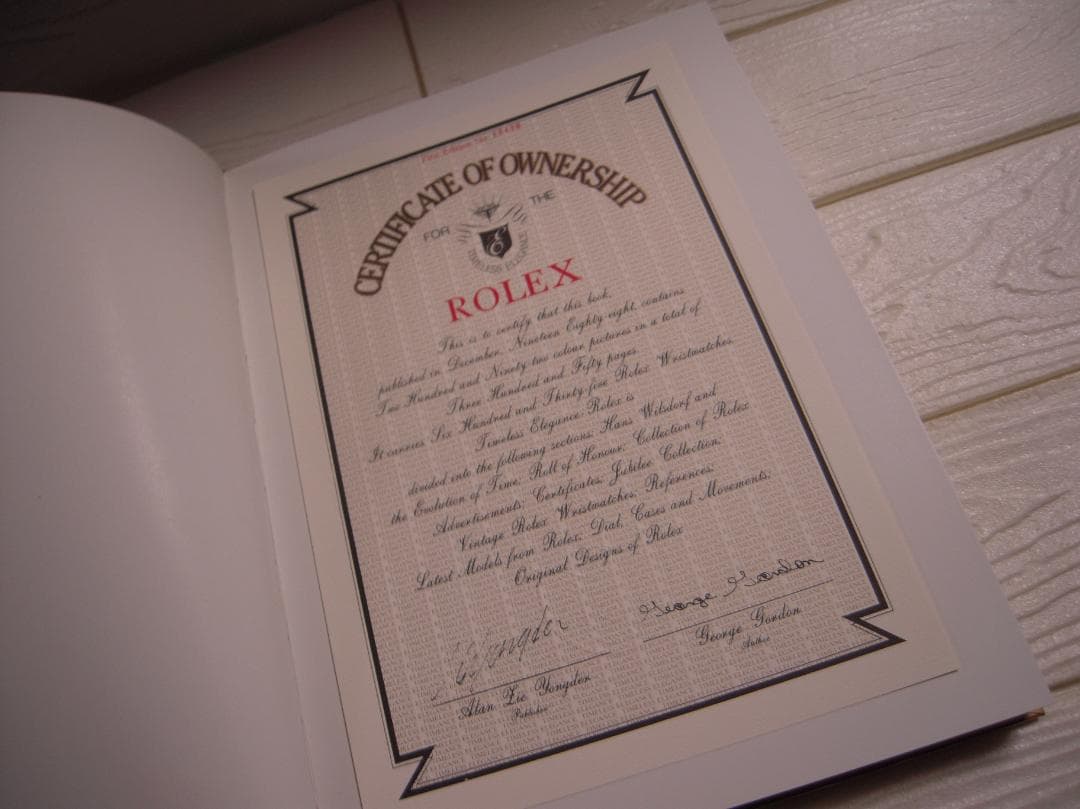 First Edition No.
CERTIFICATE OF OWNERSHIP
FOR THE
TIMELESS ELEGANCE
ROLEX
This is to certify that this book,
published in December, Nineteen Eighty-eight, contains
Two Hundred and Ninety-two colour pictures in a total of
Three Hundred and Fifty pages.
It carries Six Hundred and Thirty-five Rolex Wristwatches.
Timeless Elegance: Rolex is
divided into the following sections: Hans Wilsdorf and
the Evolution of Time; Roll of Honour; Collection of Rolex
Advertisements; Certificates; Jubilee Collection;
Vintage Rolex Wristwatches; References;
Latest Models from Rolex; Dial, Cases and Movements;
Original Designs of Rolex
George Gordon
Alan Zie Yongder
Publisher
George Gordon
Author